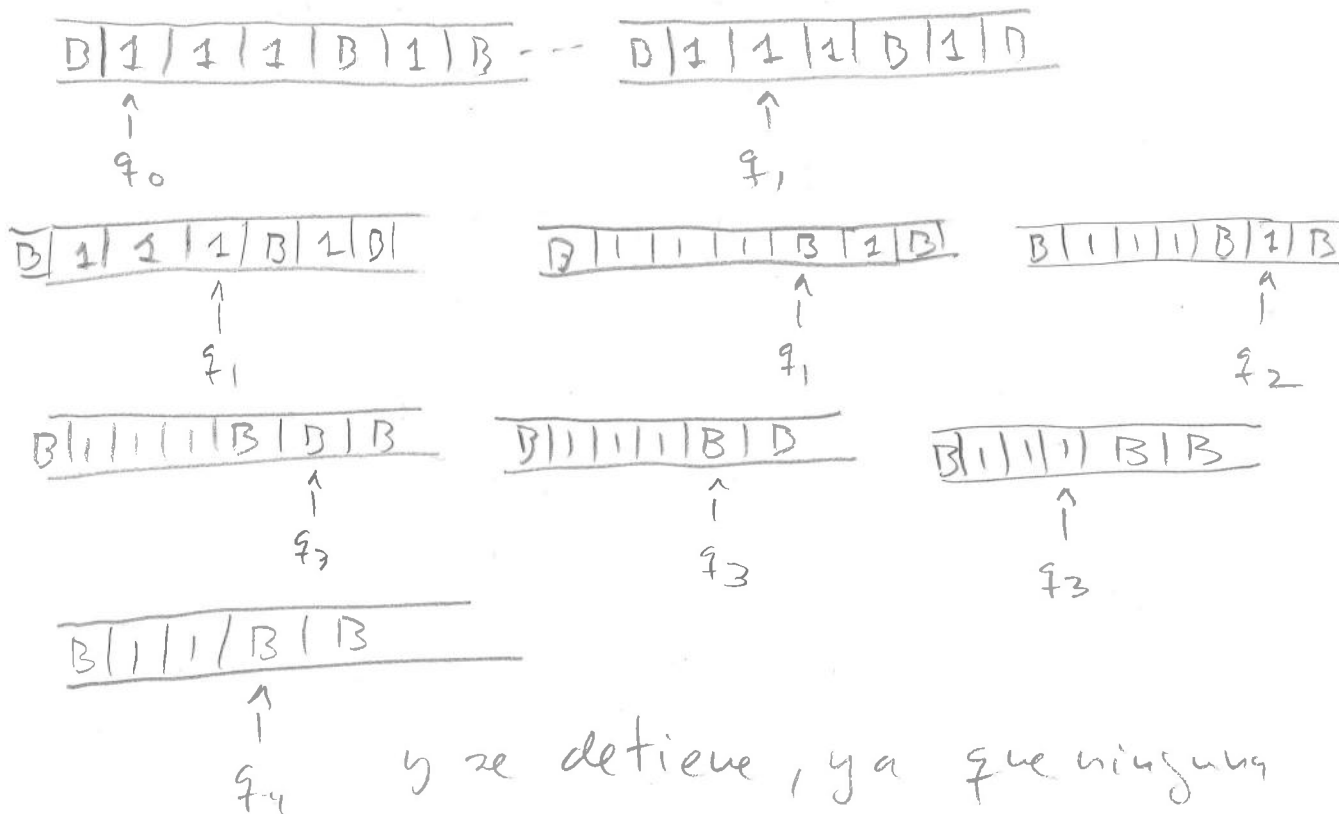 B|1|1|1|B|1|B --- B|1|1|1|B|1|B
↑ ↑
q0 q1
B|1|1|1|B|1|B| B|1|1|1|B|1|B| B|1|1|1|B|1|B
↑ ↑ ↑
q1 q1 q2
B|1|1|1|B|B|B B|1|1|1|B|B B|1|1|1|B|B
↑ ↑ ↑
q3 q3 q3
B|1|1|B|B
↑
q4 y se detiene, ya que ninguna